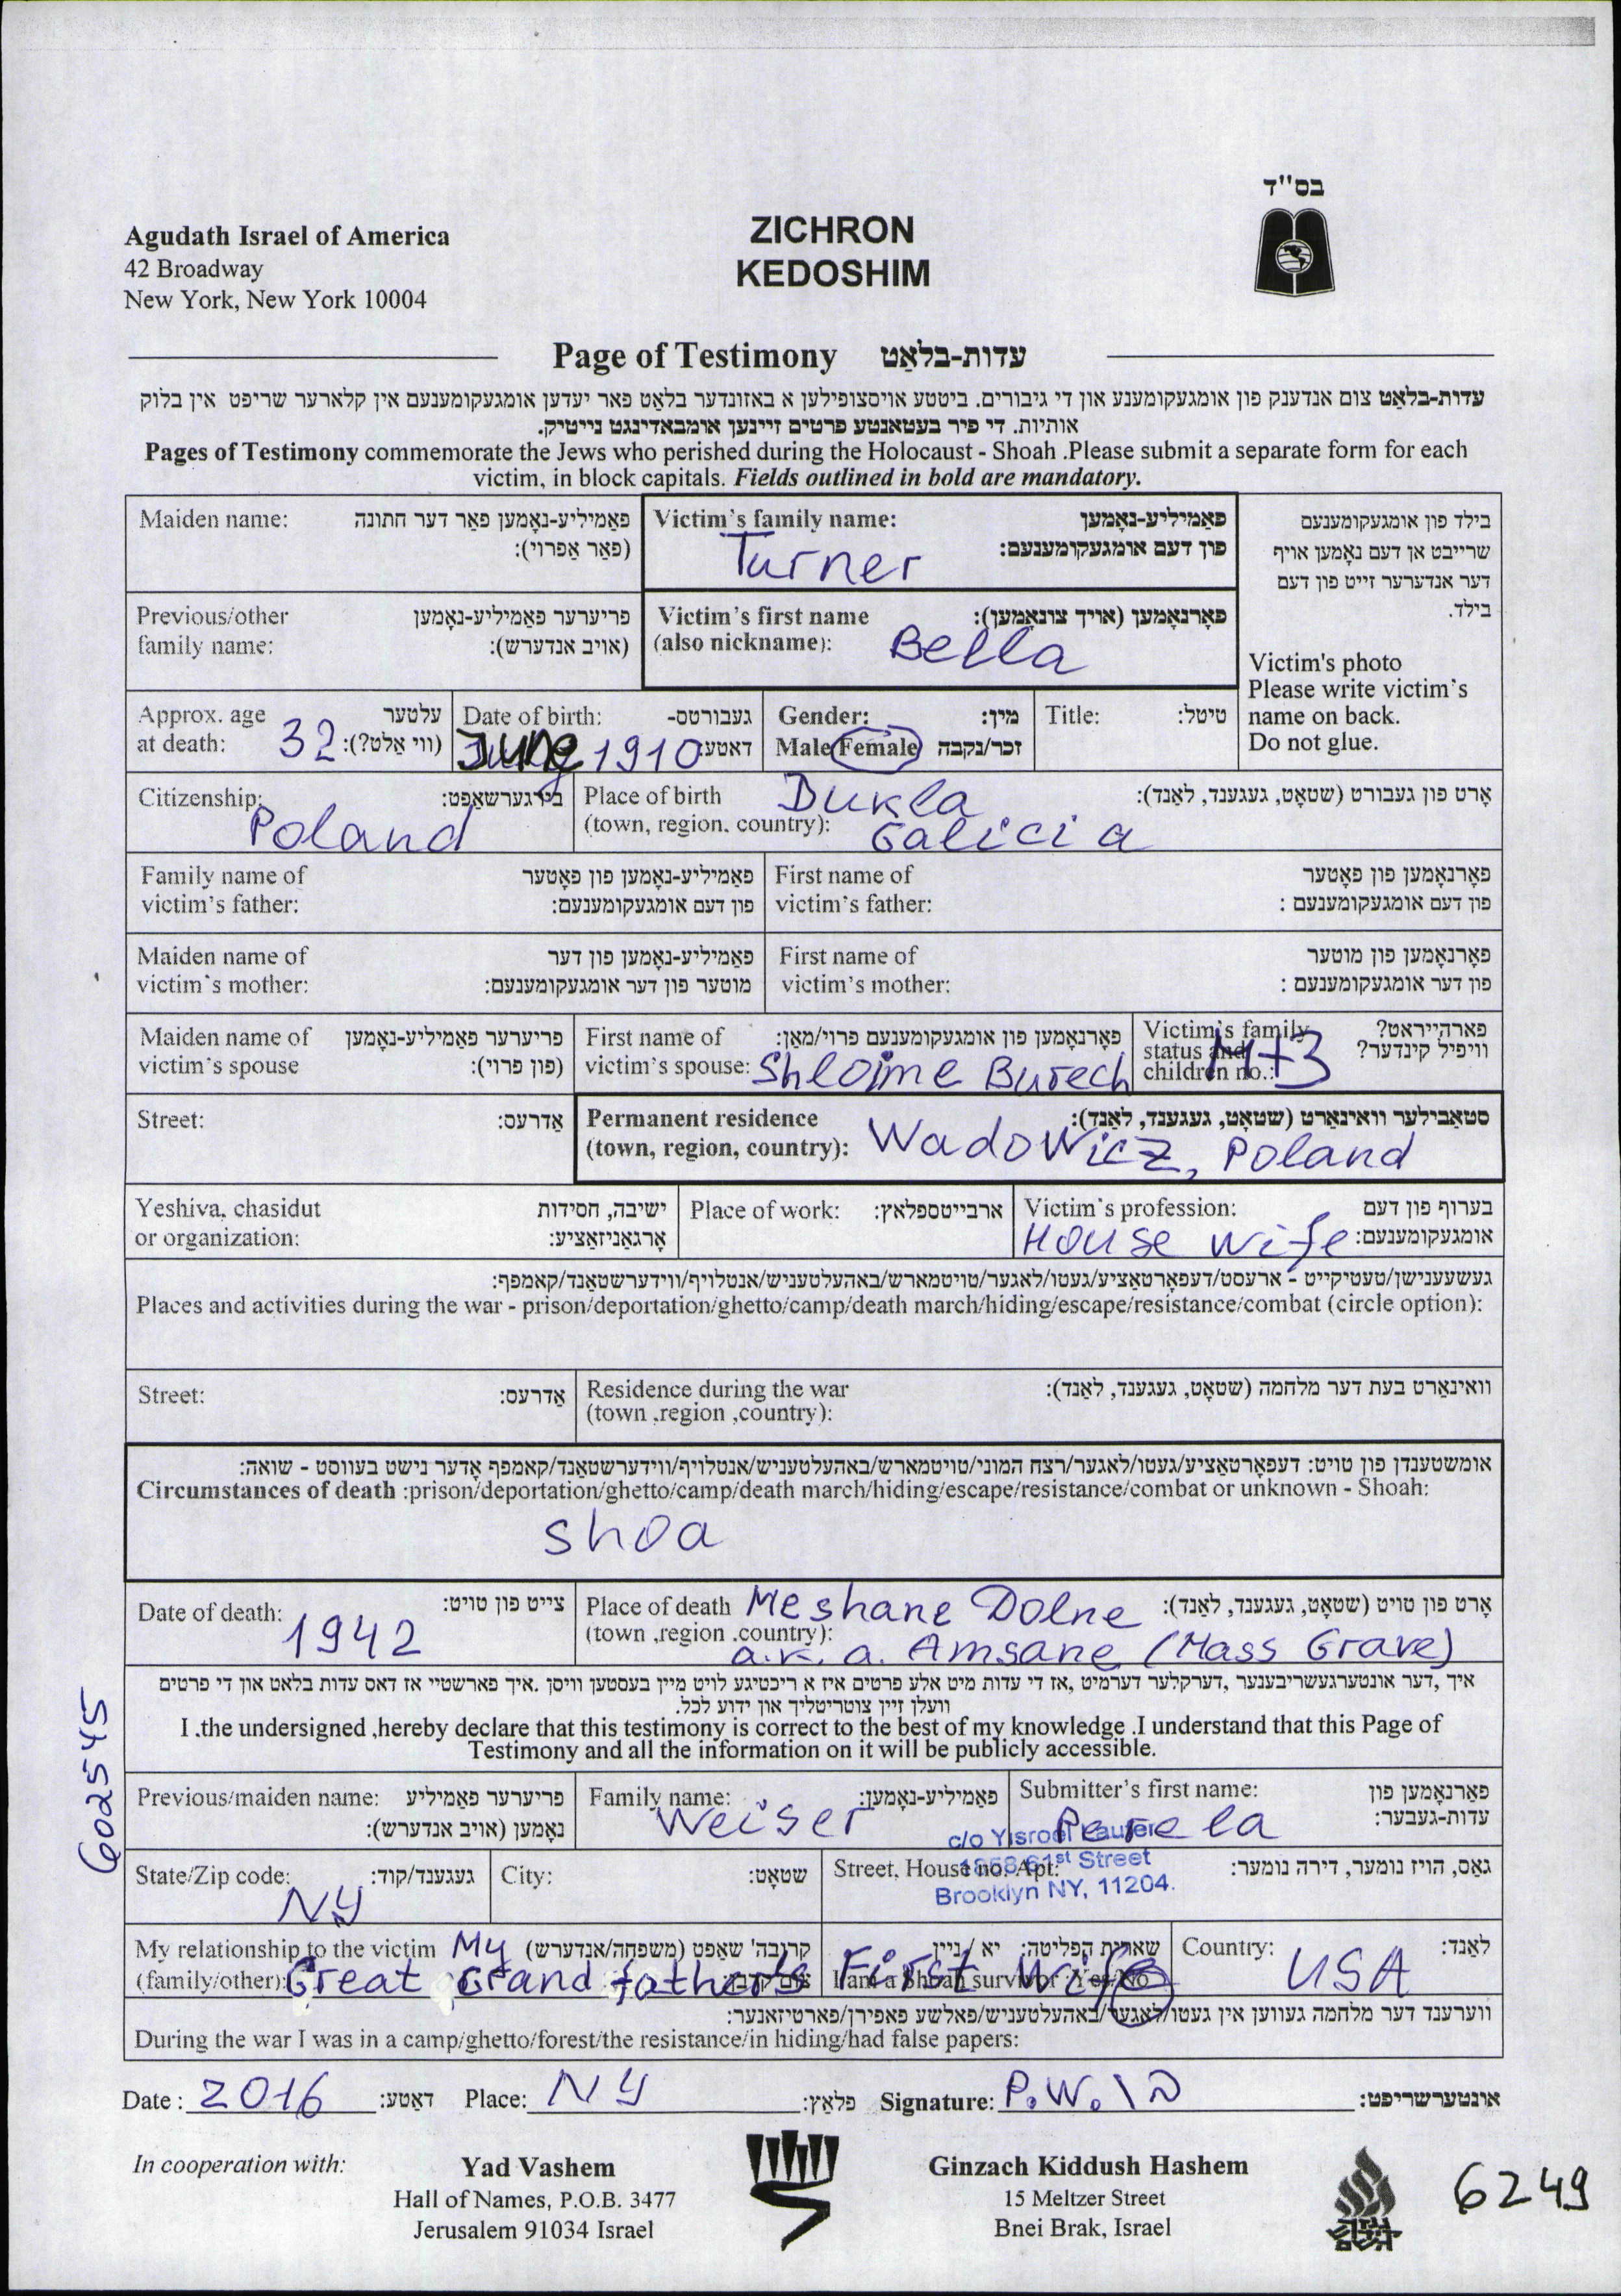 בס"ד
Agudath Israel of America
42 Broadway
New York, New York 10004
ZICHRON
KEDOSHIM
Page of Testimony עדות-בלאַט
עדות-בלאַט צום אנדענק פון אומגעקומענע און די גיבורים. ביטטע אויסצופילען א באזונדער בלאַט פאר יעדען אומגעקומענעם אין קלארער שריפט אין בלוק
אותיות. די פיר בעטאנטע פרטים זיינען אומבאדינגט נייטיק.
Pages of Testimony commemorate the Jews who perished during the Holocaust - Shoah .Please submit a separate form for each
victim, in block capitals. Fields outlined in bold are mandatory.
Maiden name: פאַמיליע-נאָמען פאַר דער חתונה
(פאַר אַפרוי):
Victim's family name: פאַמיליע-נאָמען
פון דעם אומגעקומענעם:
Turner
בילד פון אומגעקומענעם
שרייבט אן דעם נאָמען אויף
דער אנדערער זייט פון דעם
בילד.
Victim's photo
Please write victim's
name on back.
Do not glue.
Previous/other פריערער פאַמיליע-נאָמען
family name: (אויב אנדערש):
Victim's first name פאָרנאָמען (אויך צונאָמען):
(also nickname): Bella
Approx. age עלטער
at death: 32 (ווי אַלט?):
Date of birth: געבורטס-
June 1910 דאטע:
Gender: מין:
Male/Female זכר/נקבה
Title: טיטל:
Citizenship: בירגערשאַפט:
Poland
Place of birth Dukla אָרט פון געבורט (שטאָט, געגענד, לאַנד):
(town, region, country): Galicia
Family name of פאַמיליע-נאָמען פון פאָטער
victim's father: פון דעם אומגעקומענעם:
First name of פאָרנאָמען פון פאָטער
victim's father: פון דעם אומגעקומענעם :
Maiden name of פאַמיליע-נאָמען פון דער
victim's mother: מוטער פון דער אומגעקומענעם:
First name of פאָרנאָמען פון מוטער
victim's mother: פון דער אומגעקומענעם :
Maiden name of פריערער פאַמיליע-נאָמען
victim's spouse (פון פרוי):
First name of פאָרנאָמען פון אומגעקומענעם פרוי/מאַן:
victim's spouse: Shloime Burech
Victim's family פארהייראט?
status and וויפיל קינדער?
children no.: M+3
Street: אַדרעס:
Permanent residence סטאַבילער וואוינאָרט (שטאָט, געגענד, לאַנד):
(town, region, country): Wadowicz, Poland
Yeshiva, chasidut ישיבה, חסידות
or organization: אָרגאַניזאַציע:
Place of work: ארבייטספלאץ:
Victim's profession: בערוף פון דעם
House wife אומגעקומענעם:
געשעענישן/טעטיקייט - ארעסט/דעפּאָרטאַציע/געטו/לאגער/טויטמארש/באהעלטעניש/אנטלויף/ווידערשטאַנד/קאמפף:
Places and activities during the war - prison/deportation/ghetto/camp/death march/hiding/escape/resistance/combat (circle option):
Street: אַדרעס:
Residence during the war וואוינאָרט בעת דער מלחמה (שטאָט, געגענד, לאַנד):
(town ,region ,country):
אומשטענדן פון טויט: דעפּאָרטאַציע/געטו/לאגער/רצח המוני/טויטמארש/באהעלטעניש/אנטלויף/ווידערשטאַנד/קאמפף אָדער נישט בעווסט - שואה:
Circumstances of death :prison/deportation/ghetto/camp/death march/hiding/escape/resistance/combat or unknown - Shoah:
Shoa
Date of death: צייט פון טויט:
1942
Place of death Meshane Dolne אָרט פון טויט (שטאָט, געגענד, לאַנד):
(town ,region .country):
a.k.a. Amsane (Mass Grave)
איך ,דער אונטערגעשריבענער ,דערקלער דערמיט ,אז די עדות מיט אלע פרטים איז א ריכטיגע לויט מיין בעסטען וויסן .איך פארשטיי אז דאס עדות בלאט און די פרטים
וועלן זיין צוטריטליך און ידוע לכל.
I .the undersigned ,hereby declare that this testimony is correct to the best of my knowledge .I understand that this Page of
Testimony and all the information on it will be publicly accessible.
6025545
Previous/maiden name: פריערער פאַמיליע
נאָמען (אויב אנדערש):
Family name: פאַמיליע-נאָמען:
Weiser
Submitter's first name: פאָרנאָמען פון
עדות-געבער:
Perela
c/o Yisroel Laufer
1858 61st Street
Brooklyn NY, 11204.
State/Zip code: געגענד/קוד:
NY
City: שטאָט:
Street, House no. Apt: גאַס, הויז נומער, דירה נומער:
My relationship to the victim My קרובה' שאַפט (משפּחה/אנדערש)
(family/other): Great Grand father's First Wife
שארית הפליטה: יא / ניין
I am a Shoah survivor: Yes/No
Country: לאַנד:
USA
ווערענד דער מלחמה געווען אין געטו/לאגער/באהעלטעניש/פאלשע פאפירן/פארטיזאנער:
During the war I was in a camp/ghetto/forest/the resistance/in hiding/had false papers:
Date : 2016 דאטע: Place: NY פלאץ: Signature: P.W. אונטערשריפט:
In cooperation with:
Yad Vashem
Hall of Names, P.O.B. 3477
Jerusalem 91034 Israel
Ginzach Kiddush Hashem
15 Meltzer Street
Bnei Brak, Israel
6249